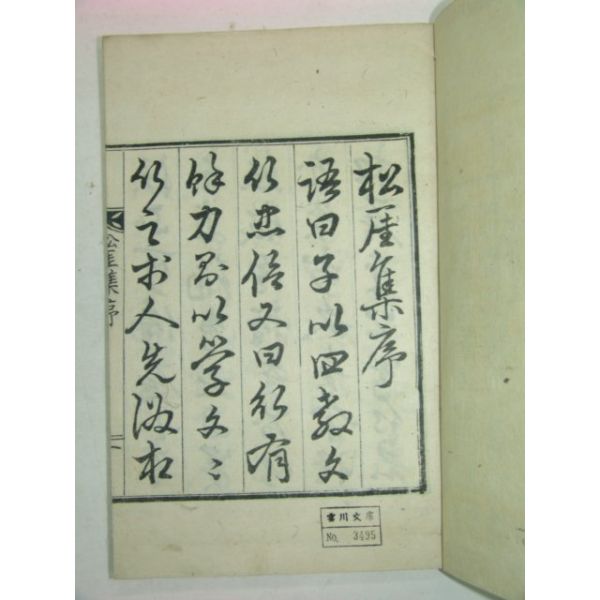 松厓集序
語曰子以四教文
行忠信又曰行有
餘力則以學文文
行之於人先後本
松厓集序
雲川文庫
No. 3495